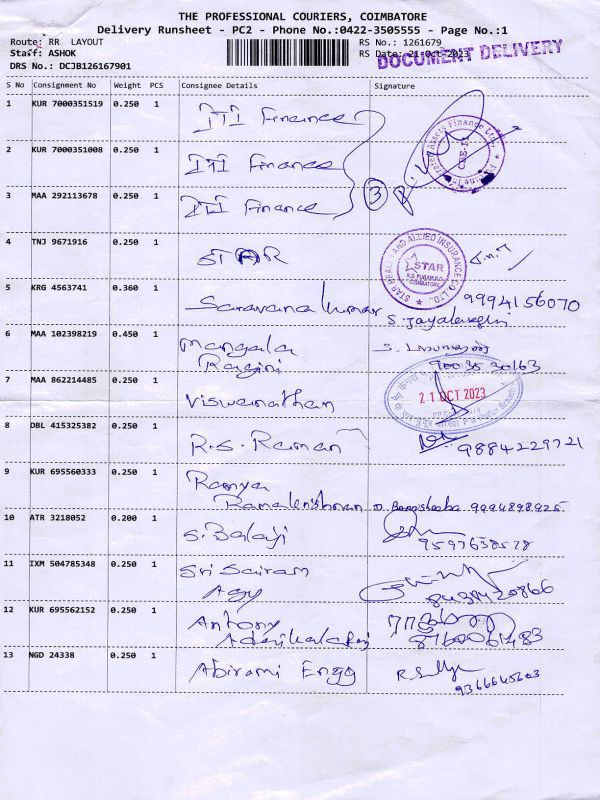 THE PROFESSIONAL COURIERS, COIMBATORE
Delivery Runsheet - PC2 - Phone No.:0422-3505555 - Page No.:1
Route: RR LAYOUT RS No.: 1261679
Staff: ASHOK RS Date: 21-Oct-2023
DOCUMENT DELIVERY
DRS No.: DCJB126167901
S No Consignment No Weight PCS Consignee Details Signature
1 KUR 7000351519 0.250 1 Finance
2 KUR 7000351008 0.250 1 Finance
3 MAA 292113678 0.250 1 Finance 3
4 TNJ 9671916 0.250 1 STAR
STAR HEALTH AND ALLIED INSURANCE CO LTD.
STAR
COIMBATORE
5 KRG 4563741 0.360 1 Saravana kumar 9994156070
6 MAA 102398219 0.450 1 Mangala
Ragini
7 MAA 862214485 0.250 1 Viswanathan
21 OCT 2023
8 DBL 415325382 0.250 1 R.S. Raman 9884229721
9 KUR 695560333 0.250 1 Ramya
Ramakrishnan 9994898925
10 ATR 3218052 0.200 1 S. Balaji
9597638528
11 IXM 504785348 0.250 1 Sri Sairam
Agy
12 KUR 695562152 0.250 1 Antony
13 NGD 24338 0.250 1 Abirami Engg